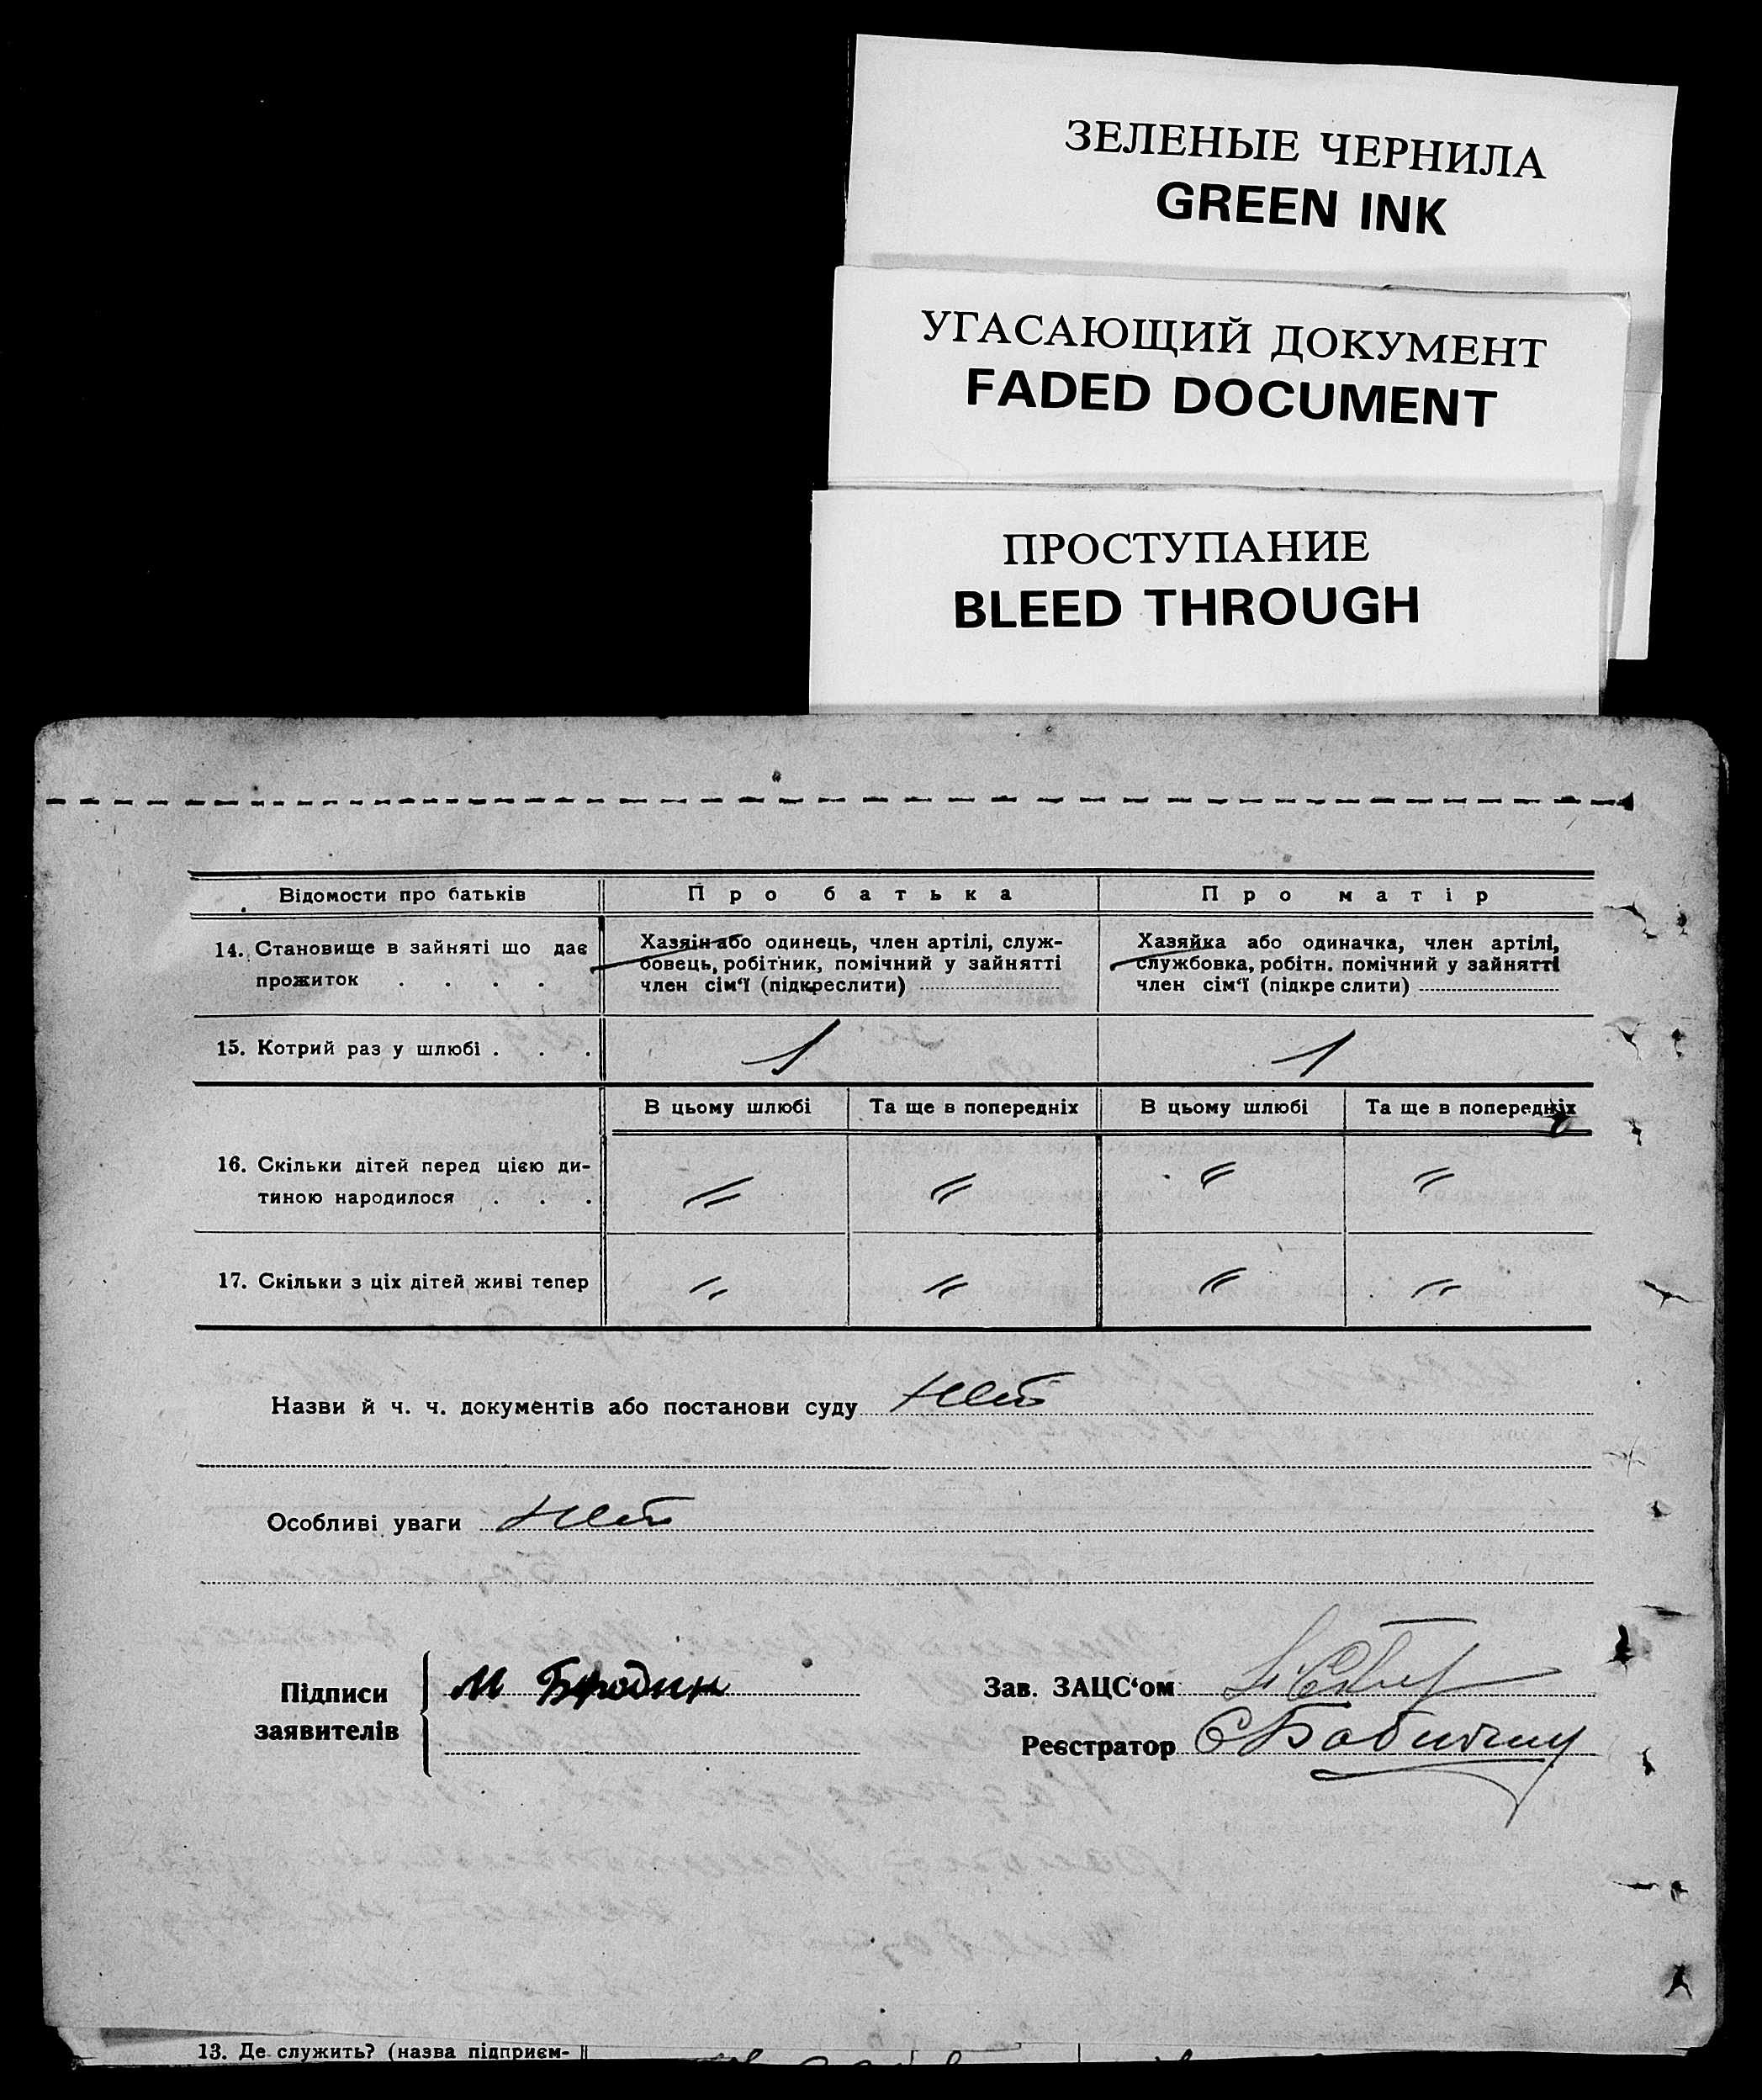 ЗЕЛЕНЫЕ ЧЕРНИЛА
GREEN INK
УГАСАЮЩИЙ ДОКУМЕНТ
FADED DOCUMENT
ПРОСТУПАНИЕ
BLEED THROUGH
Відомости про батьків Про батька Про матір
14. Становище в зайняті що дає прожиток . . . .
Хазяїн або одинець, член артілі, служ-
бовець, робітник, помічний у зайнятті
член сім'ї (підкреслити)
Хазяйка або одиначка, член артілі,
службовка, робітн. помічний у зайнятті
член сім'ї (підкреслити)
15. Котрий раз у шлюбі . . . 1 1
В цьому шлюбі Та ще в попередніх В цьому шлюбі Та ще в попередніх
16. Скільки дітей перед цією ди-
тиною народилося . . . 〃 〃 〃 〃
17. Скільки з ціх дітей живі тепер 〃 〃 〃 〃
Назви й ч. ч. документів або постанови суду нет
Особливі уваги нет
Підписи
заявителів
М Бродин
Зав. ЗАЦС'ом
Реєстратор
13. Де служить? (назва підприєм-